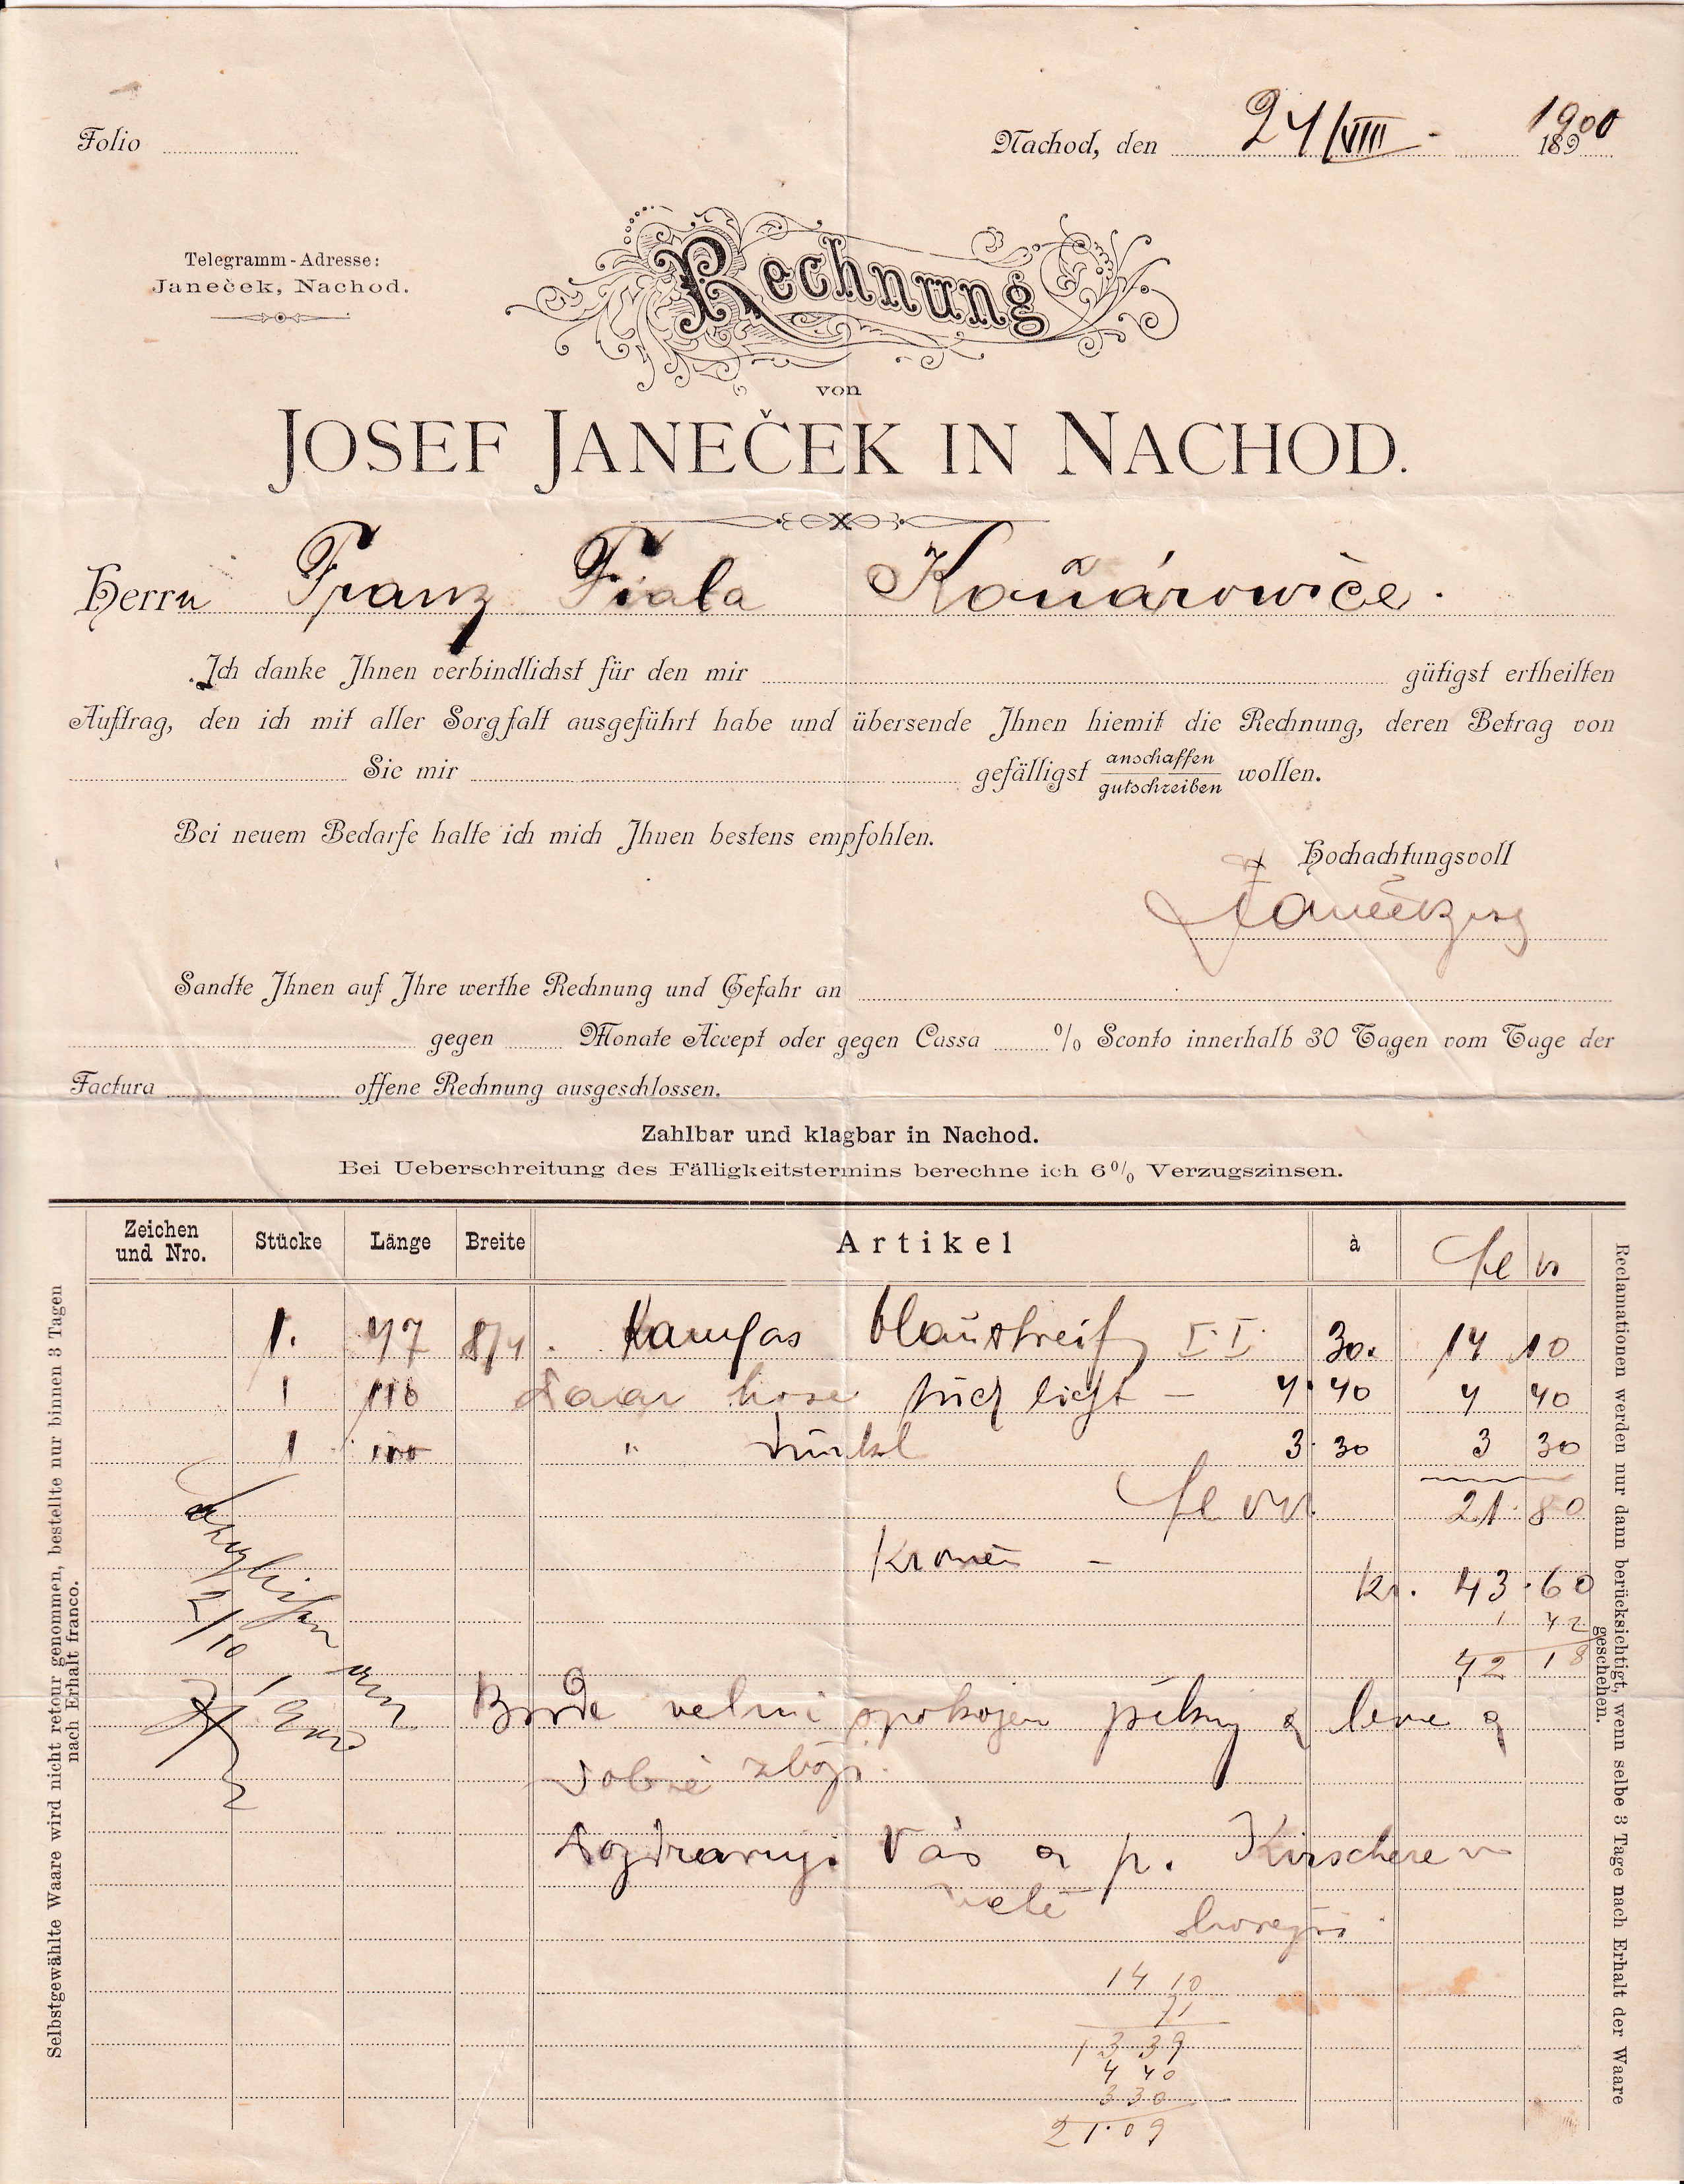 Folio
Nachod, den 24/VIII 1900
189
Telegramm-Adresse:
Janeček, Nachod.
Rechnung
von
JOSEF JANEČEK IN NACHOD.
Herrn Franz Fiala
Ich danke Ihnen verbindlichst für den mir gütigst ertheilten
Auftrag, den ich mit aller Sorgfalt ausgeführt habe und übersende Ihnen hiemit die Rechnung, deren Betrag von
Sie mir gefälligst anschaffen wollen.
gutschreiben
Bei neuem Bedarfe halte ich mich Ihnen bestens empfohlen.
Hochachtungsvoll
Sandte Ihnen auf Ihre werthe Rechnung und Gefahr an
gegen Monate Accept oder gegen Cassa % Sconto innerhalb 30 Tagen vom Tage der
Factura offene Rechnung ausgeschlossen.
Zahlbar und klagbar in Nachod.
Bei Ueberschreitung des Fälligkeitstermins berechne ich 6% Verzugszinsen.
Zeichen und Nro. Stücke Länge Breite Artikel à
1. 47 8/4 blaustreif II 30. 14 10
1 110 hose licht - 4 40 4 40
1 " dunkel 3 30 3 30
21 80
Kronen - Kr. 43 60
1 42
42 18
2/10
velmi spokojen pěkný a levné a
dobré zboží.
Vás a p.
14 10
71
13 39
4 40
3 30
21.09
Selbstgewählte Waare wird nicht retour genommen, bestellte nur binnen 3 Tagen
nach Erhalt franco.
Reclamationen werden nur dann berücksichtigt, wenn selbe 3 Tage nach Erhalt der Waare
geschehen.